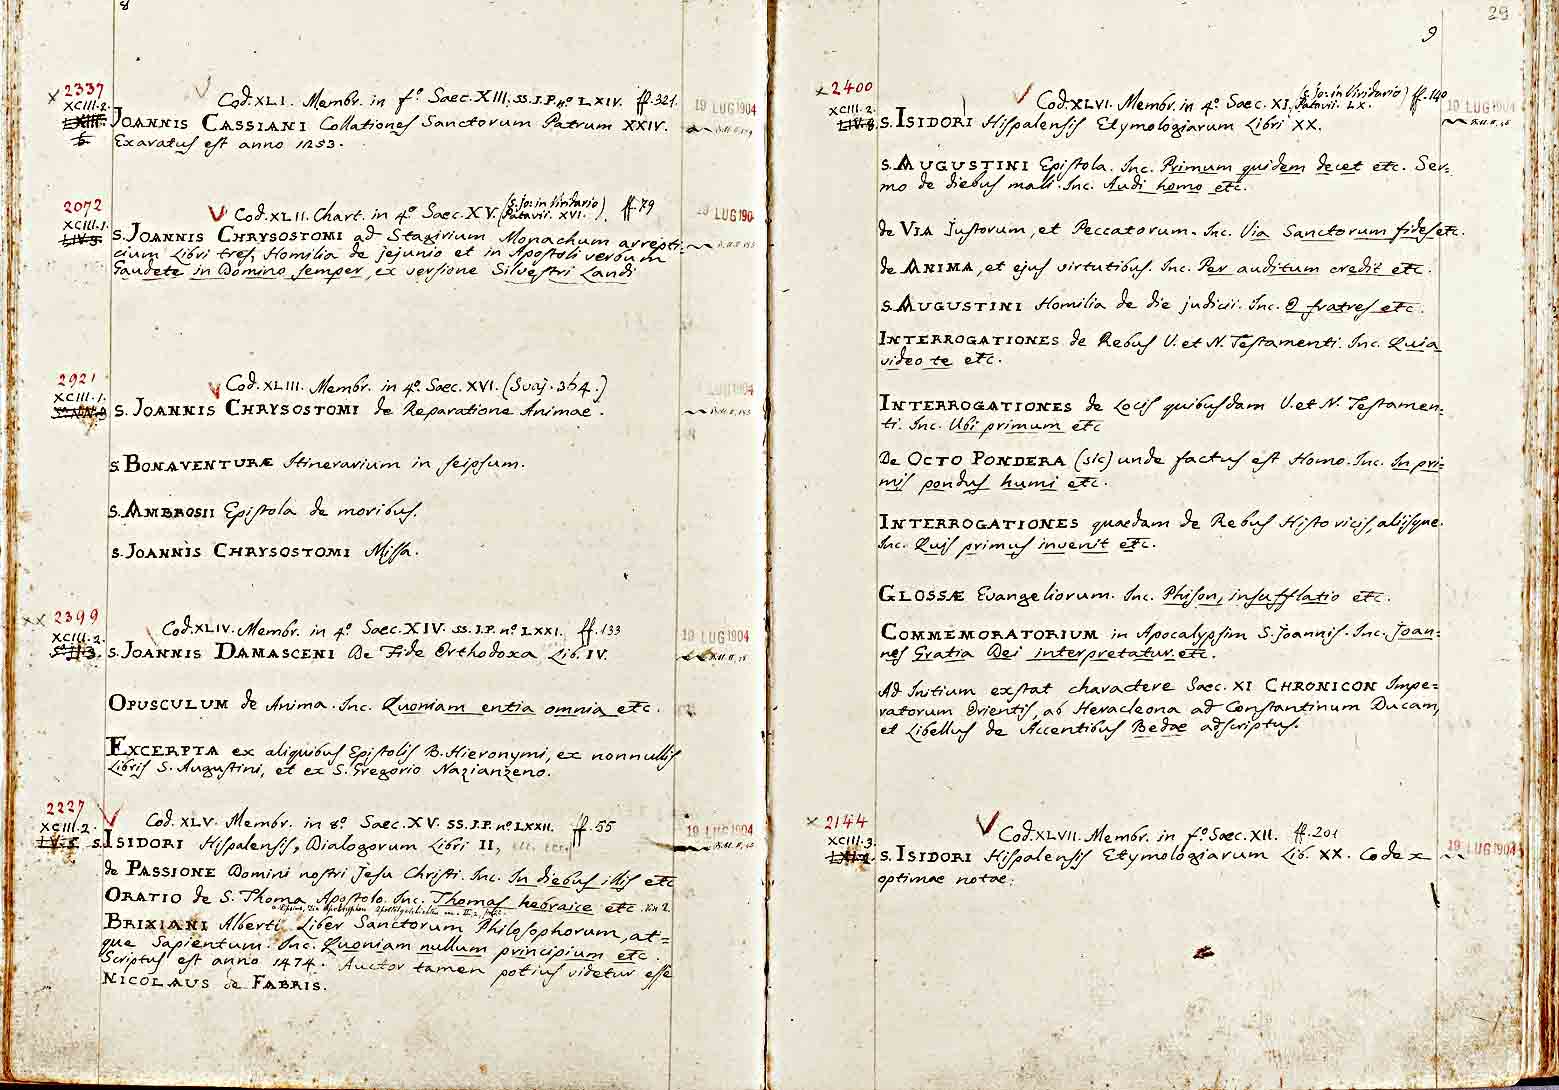 8
2337
XCIII.2.
Cod. XLI. Membr. in fº. Saec. XIII. SS.I.P. nº LXIV. ff. 321.
19 LUG 1904
JOANNIS CASSIANI Collationes Sanctorum Patrum XXIV.
Exaratus est anno 1253.
2072
XCIII.1.
Cod. XLII. Chart. in 4º. Saec. XV. (S. Jo: in Viridario Patavii. XVI.) ff. 79
19 LUG 190
S. JOANNIS CHRYSOSTOMI ad Stagirium Monachum arrepti-
cium Libri tres, Homilia de jejunio et in Apostoli verbum
Gaudete in Domino semper, ex versione Silvestri Landi
2921
XCIII.1.
Cod. XLIII. Membr. in 4º. Saec. XVI. (Svaj. 364.)
LUG 1904
S. JOANNIS CHRYSOSTOMI de Reparatione Animae.
S. BONAVENTURÆ Itinerarium in seipsum.
S. AMBROSII Epistola de moribus.
S. JOANNIS CHRYSOSTOMI Missa.
2399
XCIII.2.
Cod. XLIV. Membr. in 4º. Saec. XIV. SS.I.P. nº LXXI. ff. 133
19 LUG 1904
S. JOANNIS DAMASCENI De Fide Orthodoxa Lib. IV.
OPUSCULUM de Anima. Inc. Quoniam entia omnia etc.
EXCERPTA ex aliquibus Epistolis B. Hieronymi, ex nonnullis
Libris S. Augustini, et ex S. Gregorio Nazianzeno.
2227
XCIII.2.
Cod. XLV. Membr. in 8º. Saec. XV. SS.I.P. nº LXXII. ff. 55
19 LUG 1904
S. ISIDORI Hispalensis, Dialogorum Libri II,
de PASSIONE Domini nostri Jesu Christi. Inc. In diebus illis etc
ORATIO de S. Thoma Apostolo. Inc. Thomas hebraice etc.
BRIXIANI Alberti Liber Sanctorum Philosophorum, at=
que Sapientum. Inc. Quoniam nullum principium etc.
Scriptus est anno 1474. Auctor tamen potius videtur esse
NICOLAUS de FABRIS.
29
9
2400
XCIII.2.
Cod. XLVI. Membr. in 4º. Saec. XI. (S. Jo. in Viridario Patavii. LX.) ff. 140
19 LUG 1904
S. ISIDORI Hispalensis Etymologiarum Libri XX.
S. AUGUSTINI Epistola. Inc. Primum quidem decet etc. Ser=
mo de diebus malis. Inc. Audi homo etc.
de VIA Justorum, et Peccatorum. Inc. Via Sanctorum fides etc.
de ANIMA, et ejus virtutibus. Inc. Per auditum credit etc.
S. AUGUSTINI Homilia de die judicii. Inc. O fratres etc.
INTERROGATIONES de Rebus V. et N. Testamenti. Inc. Quia
video te etc.
INTERROGATIONES de Locis quibusdam V. et N. Testamen=
ti. Inc. Ubi primum etc
De OCTO PONDERA (sic) unde factus est Homo. Inc. In pri=
mis pondus humi etc.
INTERROGATIONES quaedam de Rebus Historicis, aliisque.
Inc. Quis primus invenit etc.
GLOSSÆ Evangeliorum. Inc. Phison, insufflatio etc.
COMMEMORATORIUM in Apocalypsim S. Joannis. Inc. Joan=
nes Gratia Dei interpretatur etc.
Ad Initium exstat charactere Saec. XI CHRONICON Impe=
ratorum Orientis, ab Heracleona ad Constantinum Ducam,
et Libellus de Accentibus Bedae adscriptus.
2144
XCIII.3.
Cod. XLVII. Membr. in fº. Saec. XII. ff. 201
19 LUG 1904
S. ISIDORI Hispalensis Etymologiarum Lib. XX. Codex
optimae notae.